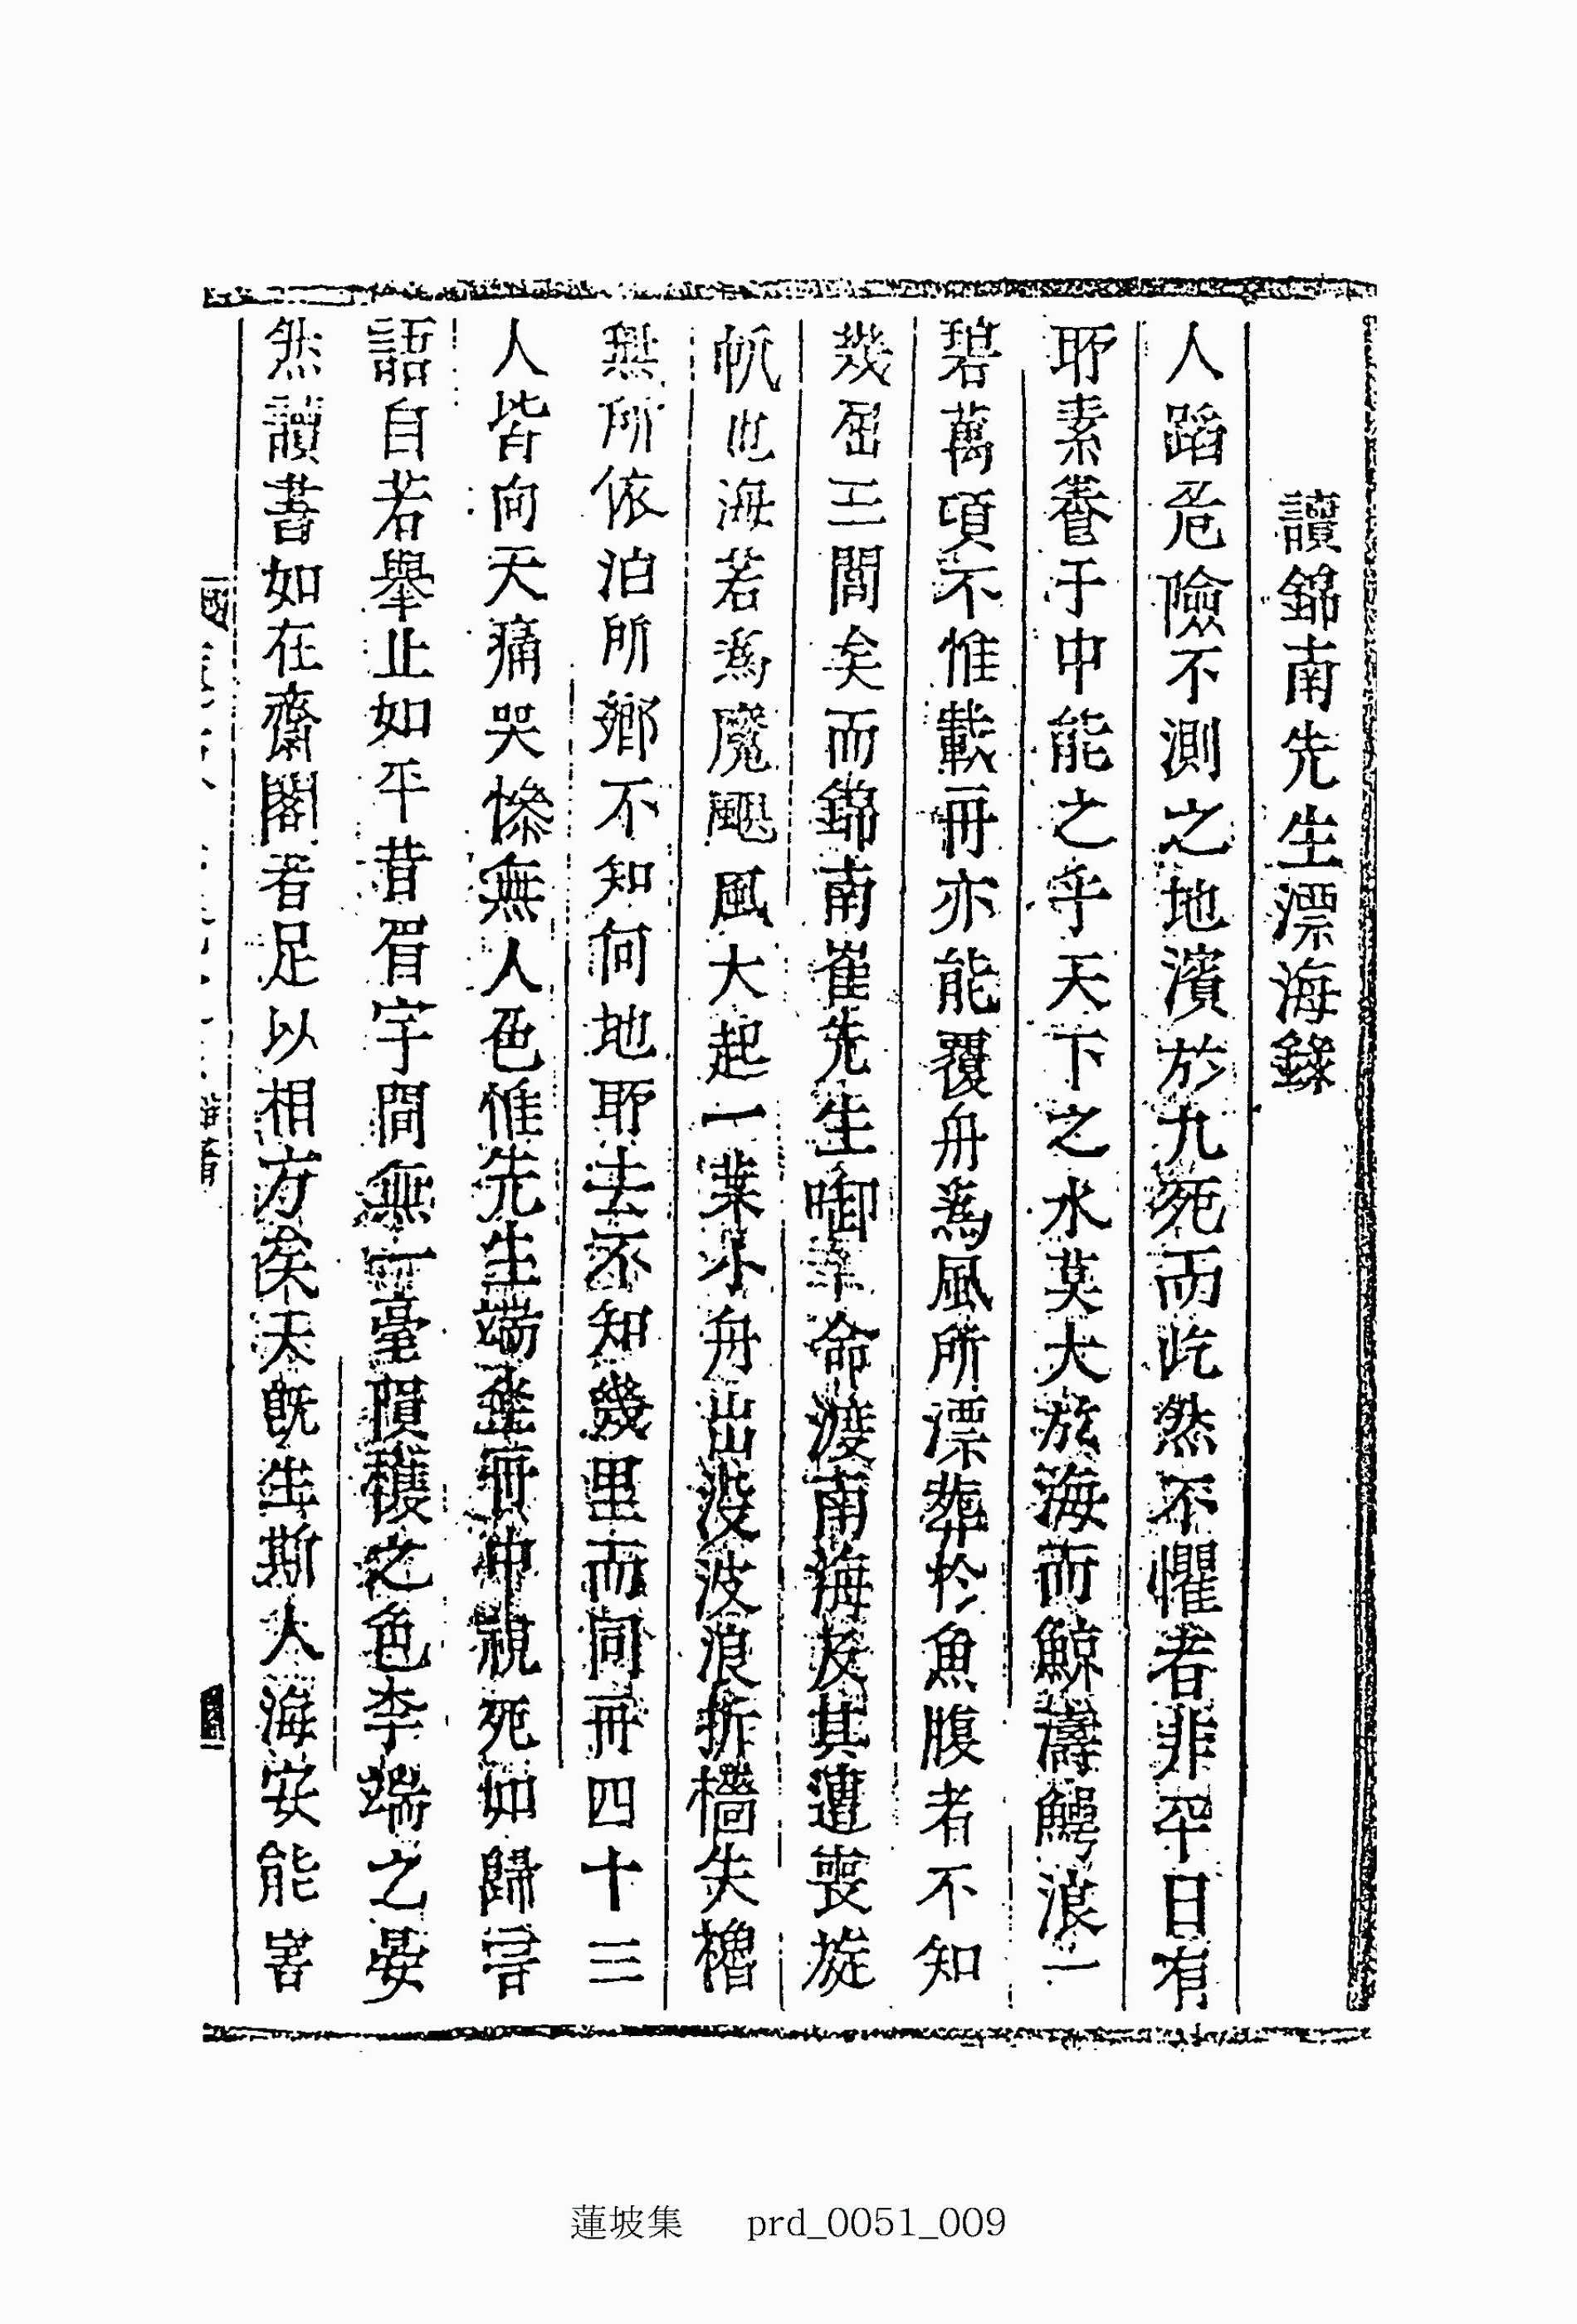 讀錦南先生漂海錄
人蹈危險不測之地濱於九死而屹然不懼者非罕日有
耶素養于中能之乎天下之水莫大於海而鯨濤鰐浪一
碧萬頃不惟載舟亦能覆舟爲風所漂葬於魚腹者不知
幾屈三閭矣而錦南崔先生啣率命渡南海及其遭喪旋
帆也海若爲魔颶風大起一葉小舟出没波浪折檣失櫓
無所依泊所鄉不知何地耶去不知幾里而同舟四十三
人皆向天痛哭慘無人色惟先生端坐舟中視死如歸言
語自若舉止如平昔眉宇間無一毫隕穫之色李端之晏
然讀書如在齋閣者足以相方矣天旣生斯人海安能害
蓮坡集 prd_0051_009